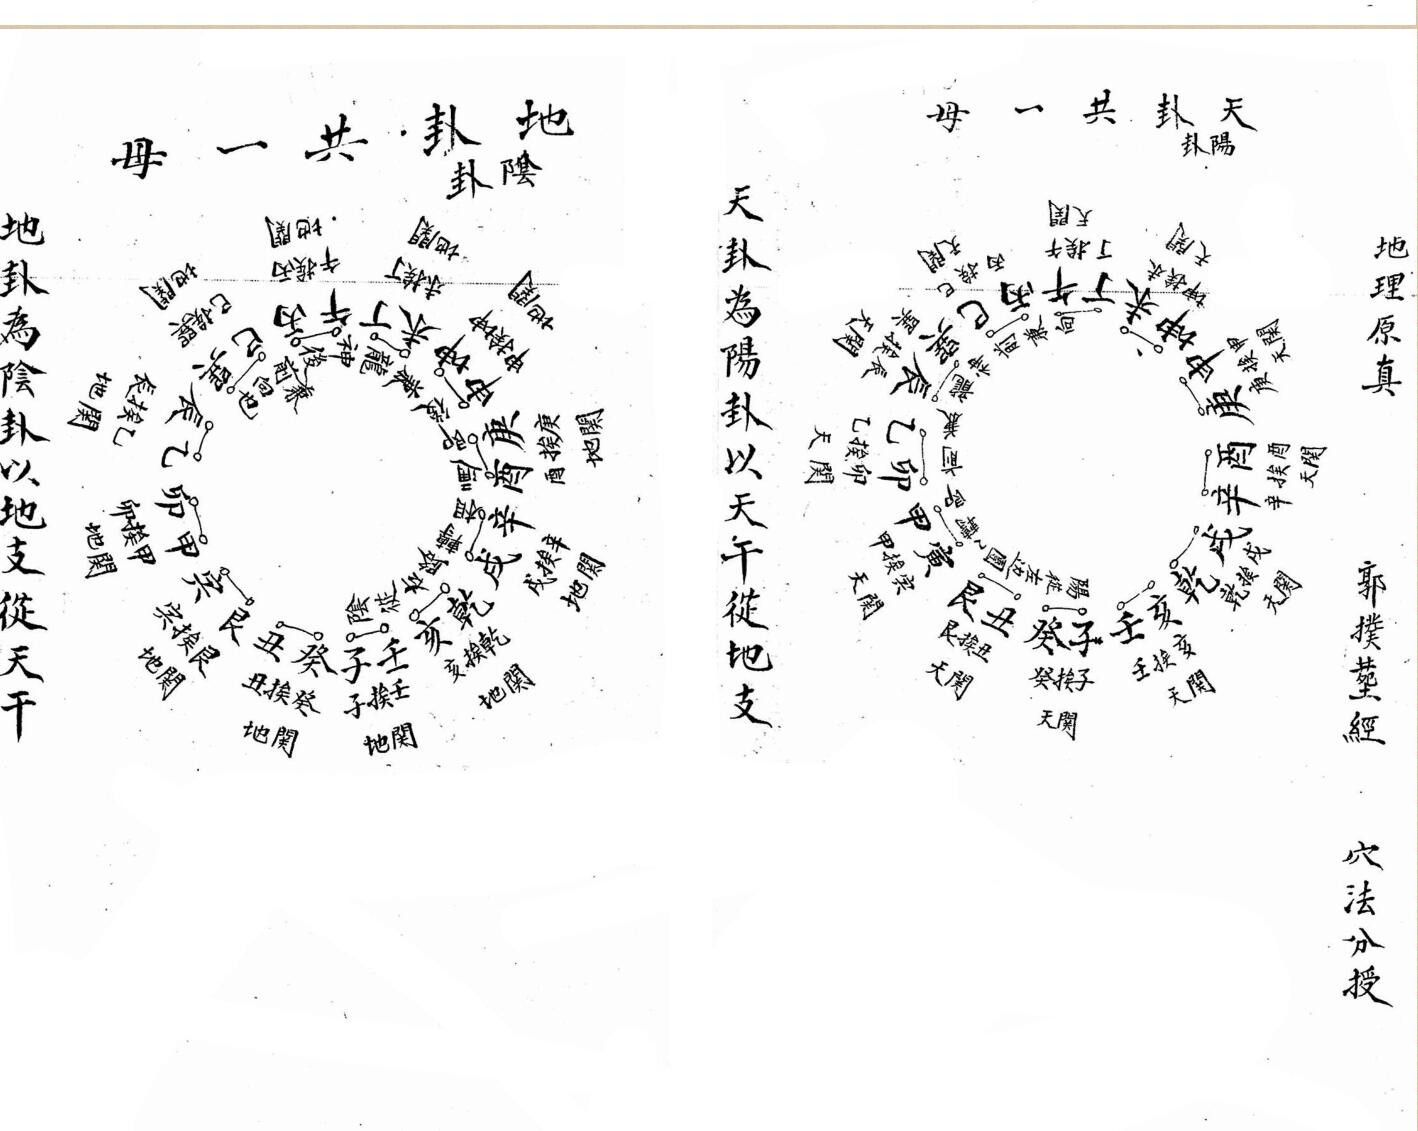 地理原真
郭撲塟經
穴法分授
天卦共一母
陽卦
天卦為陽卦以天午從地支
丁挨午
天関
坤挨未
天関
庚挨申
天関
辛挨酉
天関
乾挨戌
天関
壬挨亥
天関
癸挨子
天関
艮挨丑
天関
甲挨寅
天関
乙挨卯
天関
巽挨辰
天関
丙挨巳
天関
午丁未坤申庚酉辛戌乾亥壬子癸丑艮寅甲卯乙辰巽巳丙
地卦共一母
陰卦
地卦為陰卦以地支從天干
午挨丙
地関
未挨丁
地関
申挨坤
地関
酉挨庚
地関
戌挨辛
地関
亥挨乾
地関
子挨壬
地関
丑挨癸
地関
寅挨艮
地関
卯挨甲
地関
辰挨乙
地関
巳挨巽
地関
丙午丁未坤申庚酉辛戌乾亥壬子癸丑艮寅甲卯乙辰巽巳